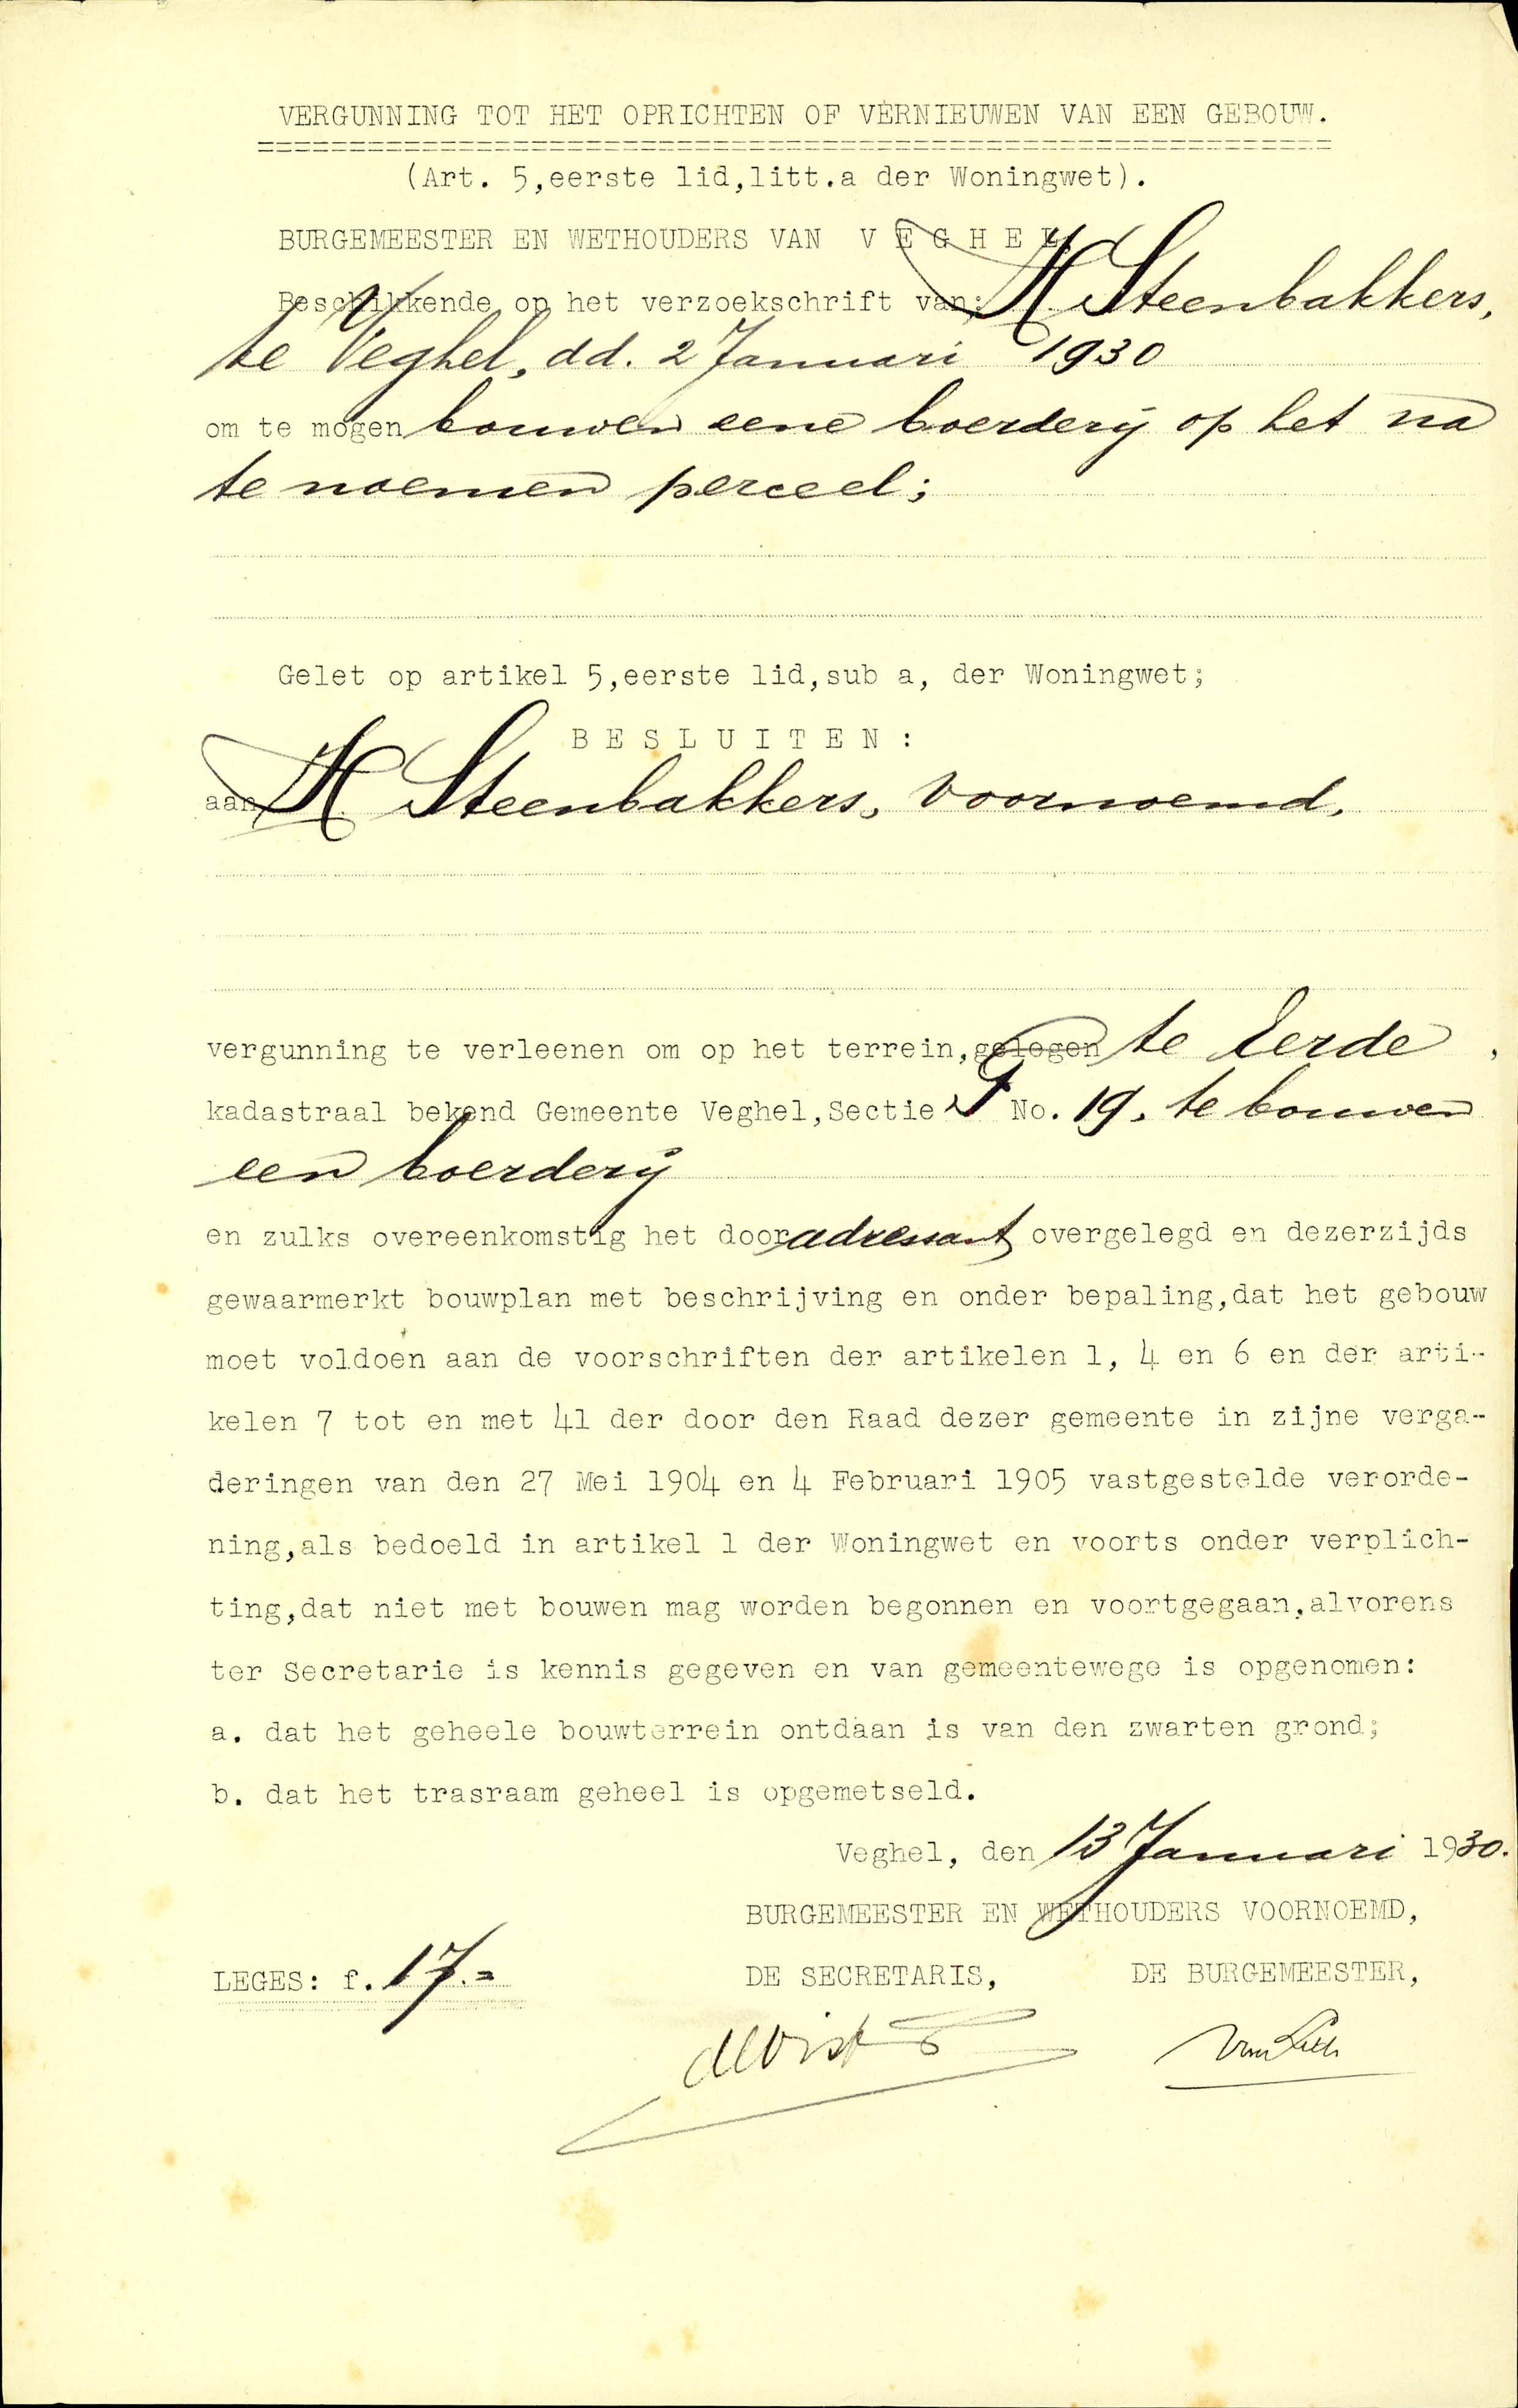 VERGUNNING TOT HET OPRICHTEN OF VERNIEUWEN VAN EEN GEBOUW.
(Art. 5,eerste lid,litt.a der Woningwet).
BURGEMEESTER EN WETHOUDERS VAN V E G H E L
Beschikkende op het verzoekschrift van: H Steenbakkers,
te Veghel, dd. 2 Januari 1930
om te mogen bouwen eene boerderij op het na
te noemen perceel;
Gelet op artikel 5,eerste lid,sub a, der Woningwet;
B E S L U I T E N :
aan H Steenbakkers, voornoemd,
vergunning te verleenen om op het terrein, gelegen te Eerde ,
kadastraal bekend Gemeente Veghel,Sectie No. 19. te bouwen
een boerderij
en zulks overeenkomstig het door adressant overgelegd en dezerzijds
gewaarmerkt bouwplan met beschrijving en onder bepaling,dat het gebouw
moet voldoen aan de voorschriften der artikelen 1, 4 en 6 en der arti-
kelen 7 tot en met 41 der door den Raad dezer gemeente in zijne verga-
deringen van den 27 Mei 1904 en 4 Februari 1905 vastgestelde verorde-
ning,als bedoeld in artikel 1 der Woningwet en voorts onder verplich-
ting,dat niet met bouwen mag worden begonnen en voortgegaan,alvorens
ter Secretarie is kennis gegeven en van gemeentewege is opgenomen:
a. dat het geheele bouwterrein ontdaan is van den zwarten grond;
b. dat het trasraam geheel is opgemetseld.
Veghel, den 13 Januari 1930.
BURGEMEESTER EN WETHOUDERS VOORNOEMD,
LEGES: f. 17.= DE SECRETARIS, DE BURGEMEESTER,
van Lith